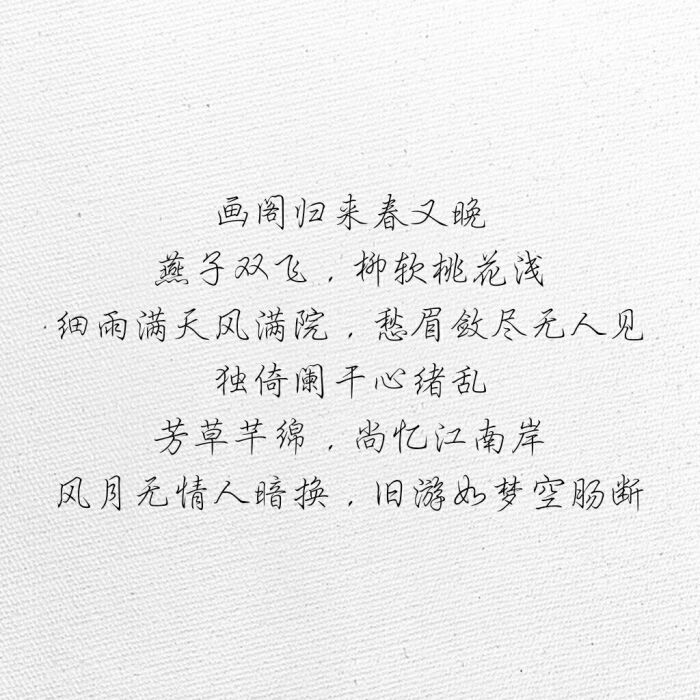 画阁归来春又晚
燕子双飞，柳软桃花浅
细雨满天风满院，愁眉敛尽无人见
独倚阑干心绪乱
芳草芊绵，尚忆江南岸
风月无情人暗换，旧游如梦空肠断